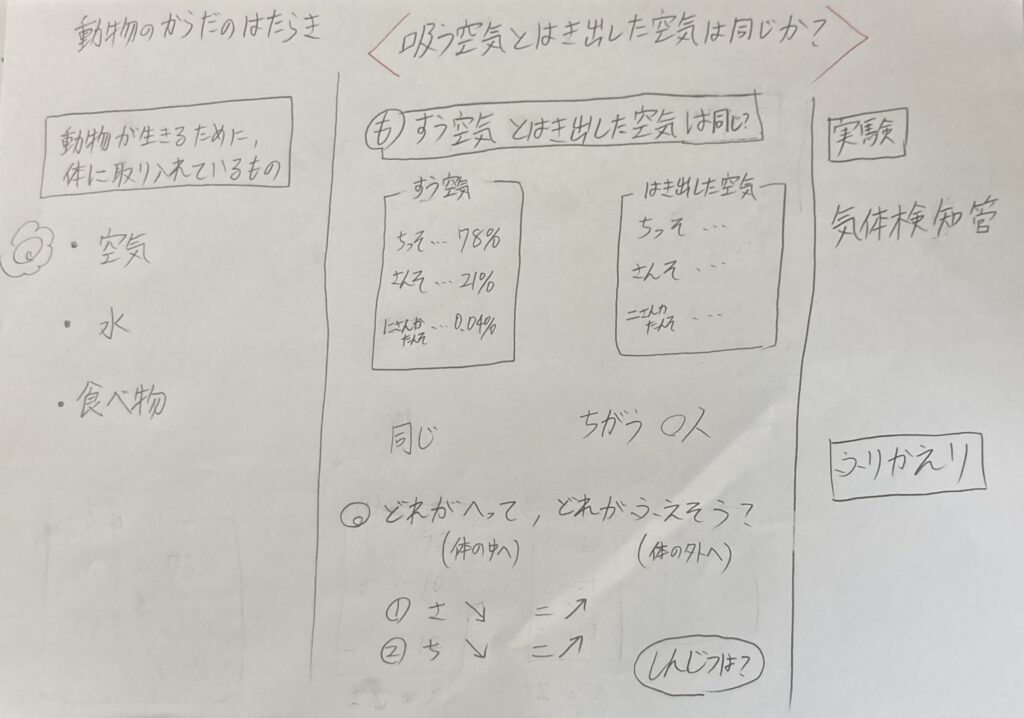 動物のからだのはたらき
吸う空気とはき出した空気は同じか?
動物が生きるために,
体に取り入れているもの
・空気
・水
・食べ物
も すう空気とはき出した空気は同じ?
すう空気
ちっそ…78%
さんそ…21%
にさんかたんそ…0.04%
はき出した空気
ちっそ …
さんそ …
二さんかたんそ …
同じ
ちがう 〇人
◎どれがへって,どれがふえそう?
(体の中へ) (体の外へ)
① さ↘ 二↗
② ち↘ 二↗
しんじつは?
実験
気体検知管
ふりかえり